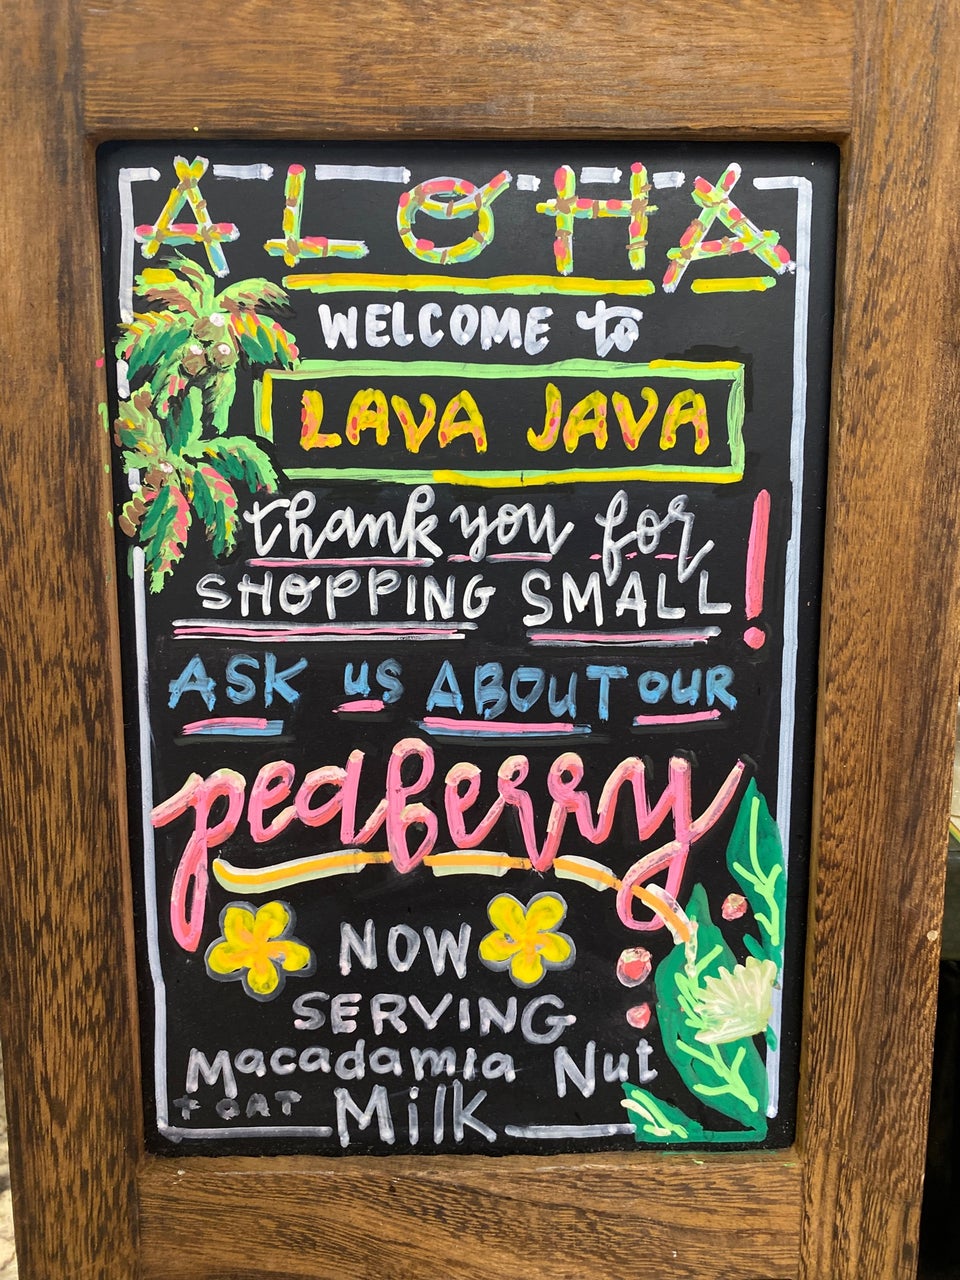 ALOHA
WELCOME to
LAVA JAVA
thank you for
SHOPPING SMALL!
ASK US ABOUT OUR
peaberry
NOW
SERVING
Macadamia Nut
+ OAT Milk